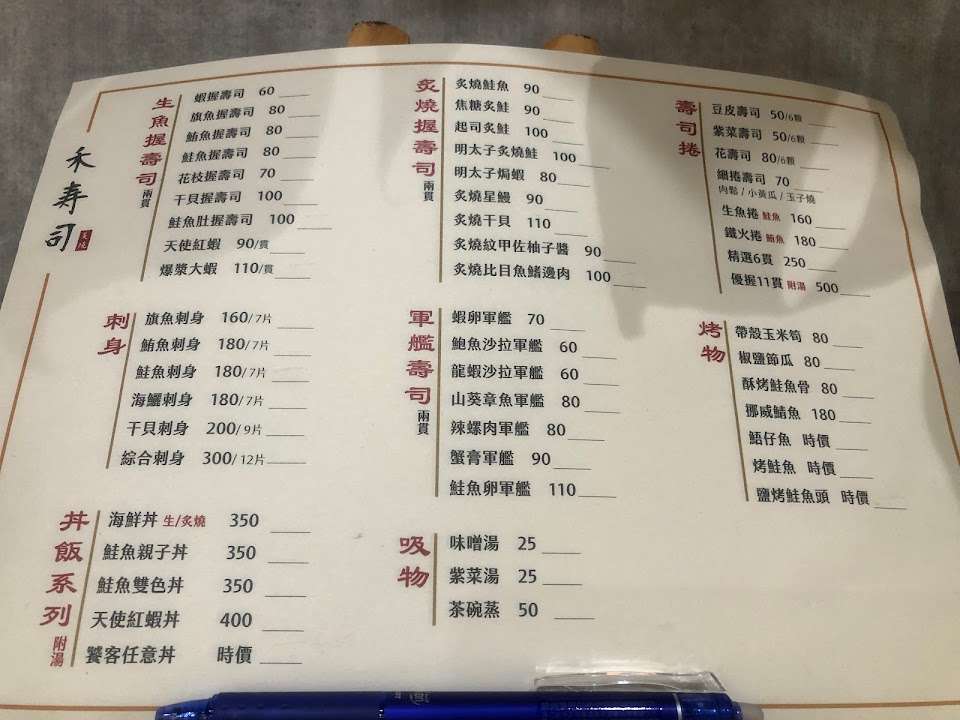 禾壽司
生魚握壽司 兩貫
蝦握壽司 60
旗魚握壽司 80
鮪魚握壽司 80
鮭魚握壽司 80
花枝握壽司 70
干貝握壽司 100
鮭魚肚握壽司 100
天使紅蝦 90/貫
爆漿大蝦 110/貫
炙燒握壽司 兩貫
炙燒鮭魚 90
焦糖炙鮭 90
起司炙鮭 100
明太子炙燒鮭 100
明太子焗蝦 80
炙燒星鰻 90
炙燒干貝 110
炙燒紋甲佐柚子醬 90
炙燒比目魚鰭邊肉 100
壽司捲
豆皮壽司 50/6顆
紫菜壽司 50/6顆
花壽司 80/6顆
細捲壽司 70
肉鬆 / 小黃瓜 / 玉子燒
生魚捲 鮭魚 160
鐵火捲 鮪魚 180
精選6貫 250
優握11貫 附湯 500
刺身
旗魚刺身 160/7片
鮪魚刺身 180/7片
鮭魚刺身 180/7片
海鱺刺身 180/7片
干貝刺身 200/9片
綜合刺身 300/12片
軍艦壽司 兩貫
蝦卵軍艦 70
鮑魚沙拉軍艦 60
龍蝦沙拉軍艦 60
山葵章魚軍艦 80
辣螺肉軍艦 80
蟹膏軍艦 90
鮭魚卵軍艦 110
烤物
帶殼玉米筍 80
椒鹽節瓜 80
酥烤鮭魚骨 80
挪威鯖魚 180
鯃仔魚 時價
烤鮭魚 時價
鹽烤鮭魚頭 時價
丼飯系列 附湯
海鮮丼 生/炙燒 350
鮭魚親子丼 350
鮭魚雙色丼 350
天使紅蝦丼 400
饕客任意丼 時價
吸物
味噌湯 25
紫菜湯 25
茶碗蒸 50